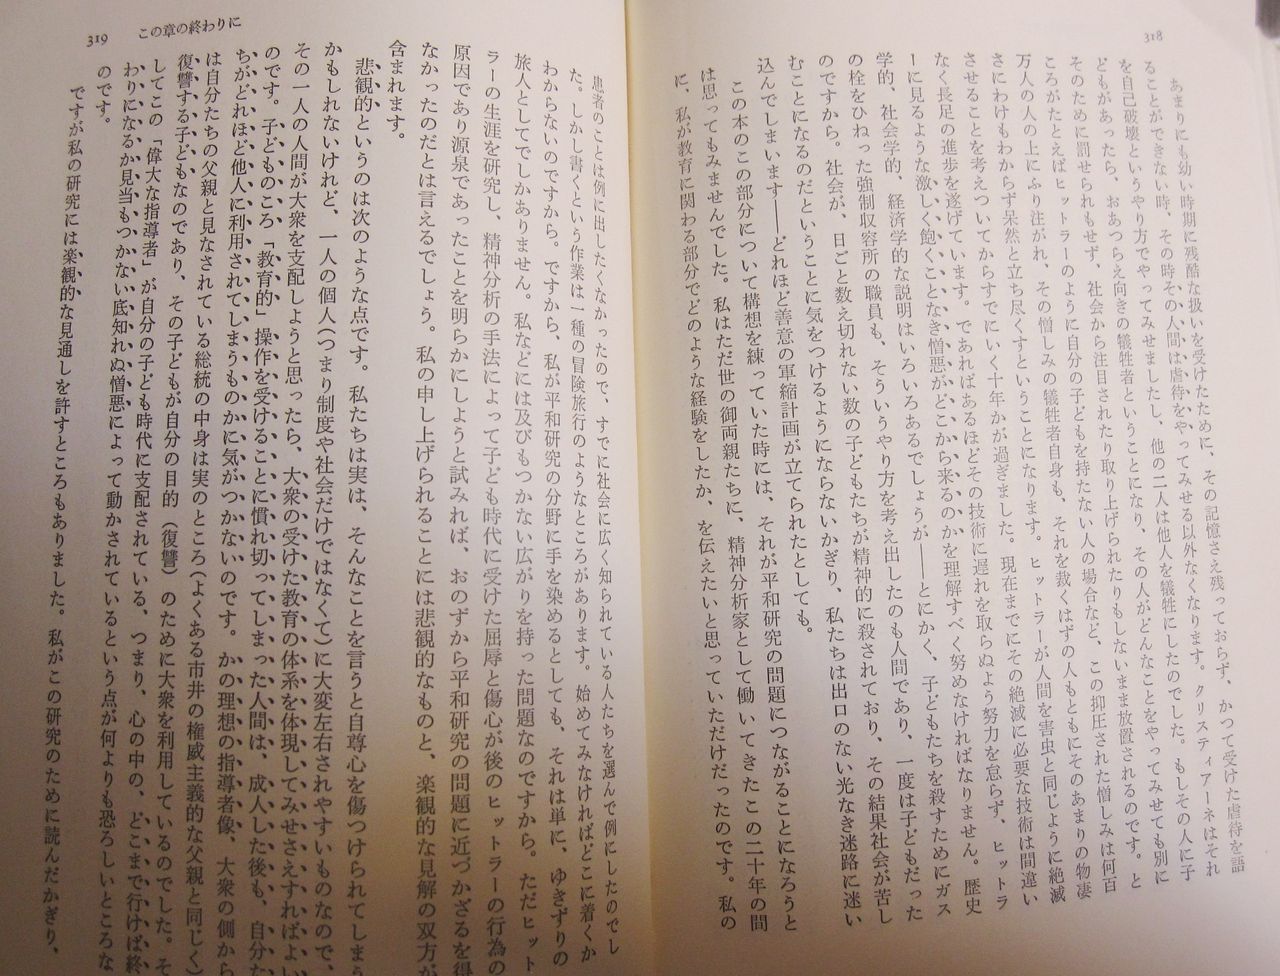 318
あまりにも幼い時期に残酷な扱いを受けたために、その記憶さえ残っておらず、かつて受けた虐待を語
ることができない時、その時その人間は虐待をやってみせる以外なくなります。クリスティアーネはそれ
を自己破壊というやり方でやってみせましたし、他の二人は他人を犠牲にしたのでした。もしその人に子
どもがあったら、おあつらえ向きの犠牲者ということになり、その人がどんなことをやってみせても別に
そのために罰せられもせず、社会から注目されたり取り上げられたりもしないまま放置されるのです。と
ころがたとえばヒットラーのように自分の子どもを持たない人の場合など、この抑圧された憎しみは何百
万人の人の上にふり注がれ、その憎しみの犠牲者自身も、それを裁くはずの人もともにそのあまりの物凄
さにわけもわからず呆然と立ち尽くすということになります。ヒットラーが人間を害虫と同じように絶滅
させることを考えついてからすでにいく十年かが過ぎました。現在までにその絶滅に必要な技術は間違い
なく長足の進歩を遂げています。であればあるほどその技術に遅れを取らぬよう努力を怠らず、ヒットラ
ーに見るような激しく飽くことなき憎悪がどこから来るのかを理解すべく努めなければなりません。歴史
学的、社会学的、経済学的な説明はいろいろあるでしょうが――とにかく、子どもたちを殺すためにガス
の栓をひねった強制収容所の職員も、そういうやり方を考え出したのも人間であり、一度は子どもだった
のですから。社会が、日ごと数え切れない数の子どもたちが精神的に殺されており、その結果社会が苦し
むことになるのだということに気をつけるようにならないかぎり、私たちは出口のない光なき迷路に迷い
込んでしまいます――どれほど善意の軍縮計画が立てられたとしても。
この本のこの部分について構想を練っていた時には、それが平和研究の問題につながることになろうと
は思ってもみませんでした。私はただ世の御両親たちに、精神分析家として働いてきたこの二十年の間
に、私が教育に関わる部分でどのような経験をしたか、を伝えたいと思っていただけだったのです。私の
319 この章の終わりに
患者のことは例に出したくなかったので、すでに社会に広く知られている人たちを選んで例にしたのでし
た。しかし書くという作業は一種の冒険旅行のようなところがあります。始めてみなければどこに着くか
わからないのですから。ですから、私が平和研究の分野に手を染めるとしても、それは単に、ゆきずりの
旅人としてでしかありません。私などには及びもつかない広がりを持った問題なのですから。ただヒット
ラーの生涯を研究し、精神分析の手法によって子ども時代に受けた屈辱と傷心が後のヒットラーの行為の
原因であり源泉であったことを明らかにしようと試みれば、おのずから平和研究の問題に近づかざるを得
なかったのだとは言えるでしょう。私の申し上げられることには悲観的なものと、楽観的な見解の双方が
含まれます。
悲観的というのは次のような点です。私たちは実は、そんなことを言うと自尊心を傷つけられてしまう
かもしれないけれど、一人の個人(つまり制度や社会だけではなくて)に大変左右されやすいものなので、
その一人の人間が大衆を支配しようと思ったら、大衆の受けた教育の体系を体現してみせさえすればよい
のです。子どものころ「教育的」操作を受けることに慣れ切ってしまった人間は、成人した後も、自分た
ちがどれほど他人に利用されてしまうものかに気がつかないのです。かの理想の指導者像、大衆の側から
は自分たちの父親と見なされている総統の中身は実のところ(よくある市井の権威主義的な父親と同じく)
復讐する子どもなのであり、その子どもが自分の目的（復讐）のために大衆を利用しているのでした。そ
してこの「偉大な指導者」が自分の子ども時代に支配されている、つまり、心の中の、どこまで行けば終
わりになるか見当もつかない底知れぬ憎悪によって動かされているという点が何よりも恐ろしいところな
のです。
ですが私の研究には楽観的な見通しを許すところもありました。私がこの研究のために読んだかぎり、